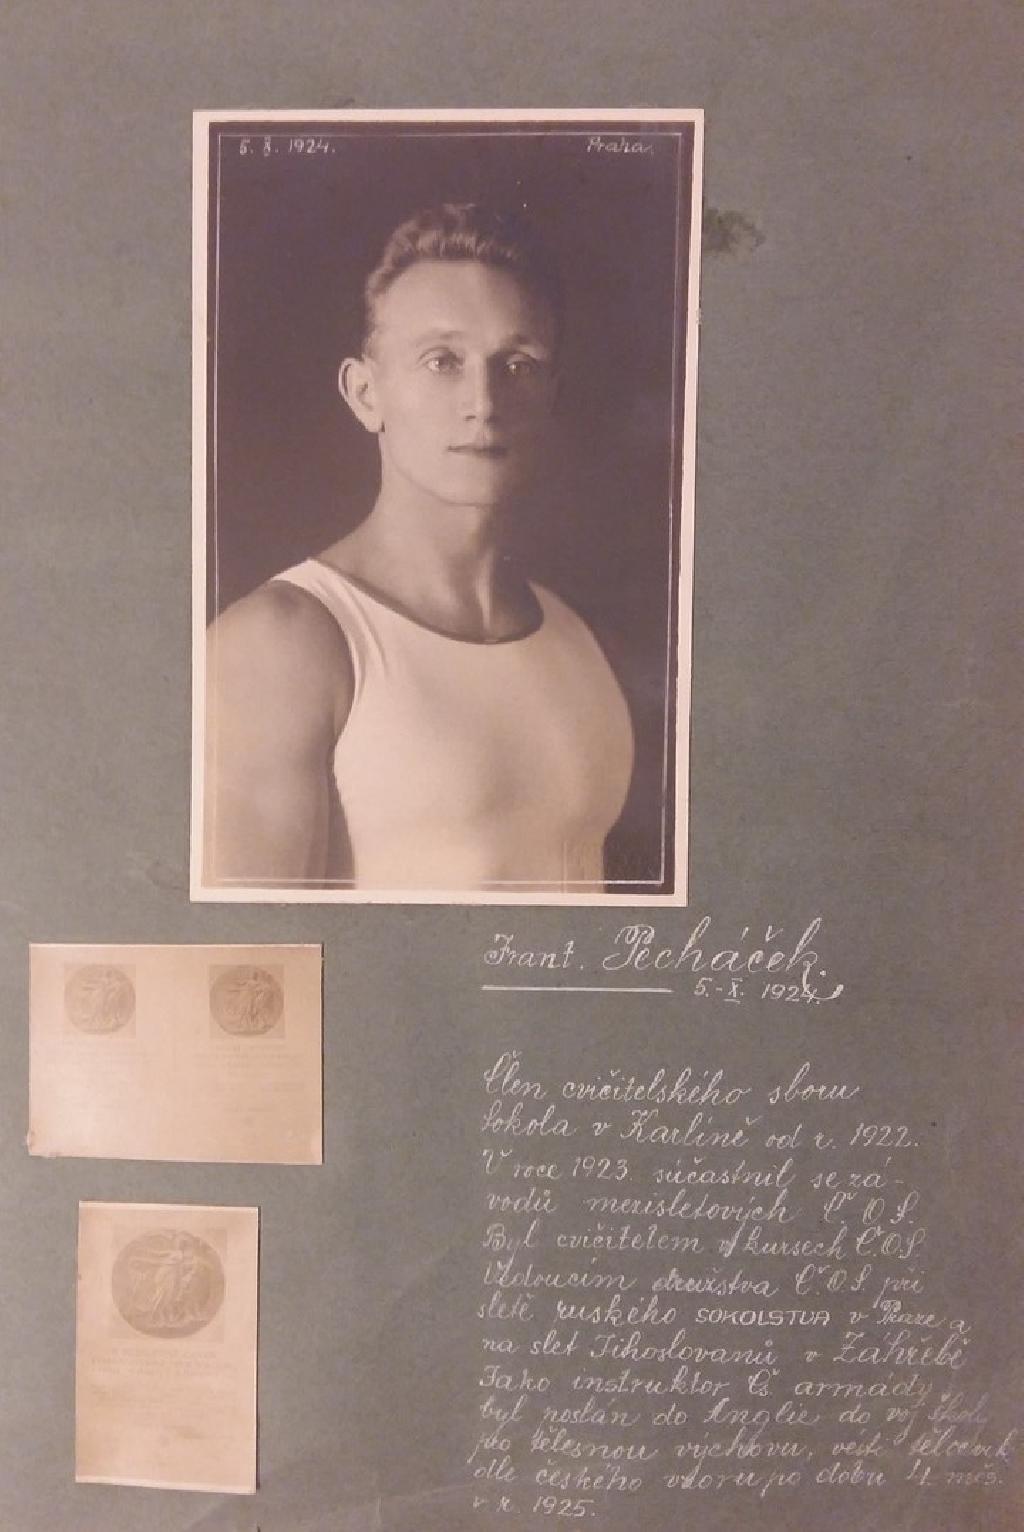 5. X. 1924. Praha.
Frant. Pecháček.
5.-X. 1924.
Člen cvičitelského sboru
Sokola v Karlíně od r. 1922.
V roce 1923. súčastnil se zá-
vodů mezisletových Č. O. S.
Byl cvičitelem v kursech Č.O.S.
Vedoucím družstva Č.O.S. při
sletě ruského SOKOLSTVA v Praze a
na slet Jihoslovanů v Záhřebě
Jako instruktor Čs. armády,
byl poslán do Anglie do voj. školy
po tělesnou výchovu, vésti tělocvik
dle českého vzoru po dobu 4 měs.
v r. 1925.